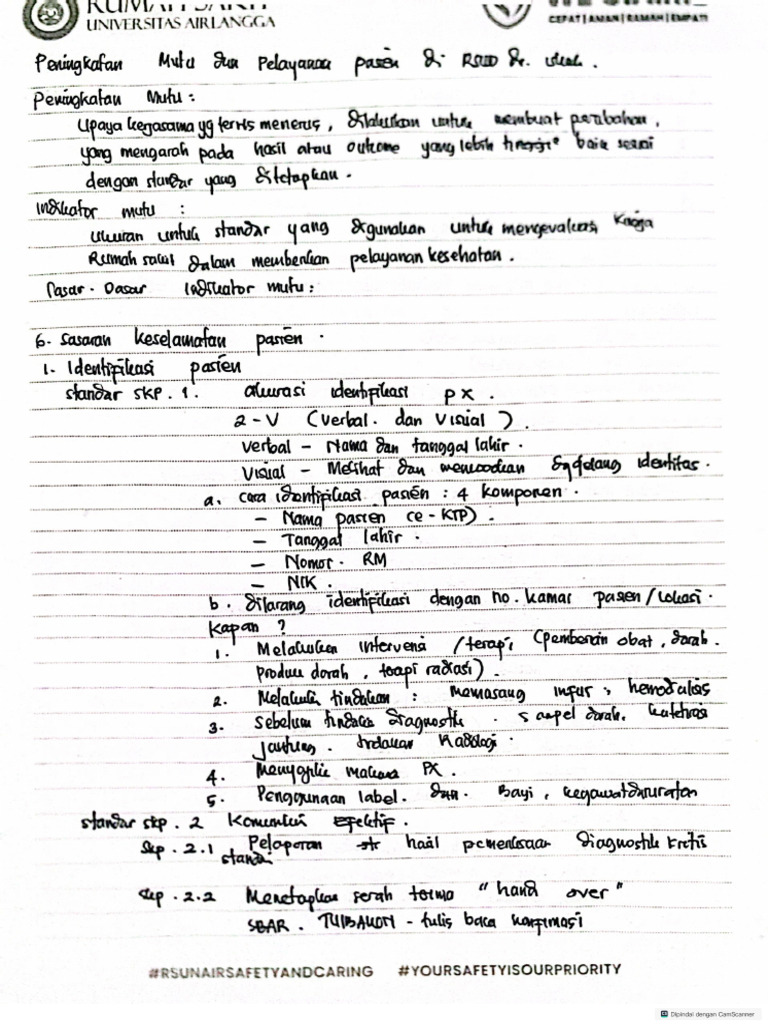 RUMAH SAKIT
UNIVERSITAS AIRLANGGA
CEPAT | AMAN | RAMAH | EMPATI
Peningkatan Mutu dan Pelayanan pasien di RSUD dr.
Peningkatan Mutu :
Upaya kegasama yg terus menerus, dilakukan untuk membuat perubahan,
yang mengarah pada hasil atau outcome yang lebih baik sesuai
dengan standar yang ditetapkan.
Indikator mutu :
Ukuran untuk standar yang digunakan untuk mengevaluasi Kinerja
Rumah sakit dalam memberikan pelayanan kesehatan.
Dasar-Dasar Indikator mutu :
6. Sasaran keselamatan pasien.
1. Identifikasi pasien
standar skp. 1. akurasi identifikasi px.
2-V (Verbal. dan Visual).
Verbal - Nama dan tanggal lahir.
Visual - Melihat dan mencocokan gelang identitas.
a. cara identifikasi pasien : 4 komponen.
- Nama pasien (e-KTP).
- Tanggal lahir.
- Nomor. RM
- NIK.
b. dilarang identifikasi dengan no. kamar pasien/lokasi.
Kapan ?
1. Melakukan intervensi /terapi (pemberian obat, darah.
produk darah, terapi radiasi).
2. Melakukan tindakan : memasang infus, hemodialisis
3. sebelum tindakan diagnostik. sampel darah. kateterisasi
jantung. tindakan Radiologi.
4. Menyajikan makanan PX.
5. Penggunaan label. Bayi, kegawatdaruratan
standar skp. 2 Komunikasi Efektif.
skp. 2.1 Pelaporan hasil pemeriksaan diagnostik kritis
standar
skp. 2.2 Menetapkan serah terima "hand over"
SBAR. TULBAKON - tulis baca konfirmasi
#RSUNAIRSAFETYANDCARING #YOURSAFETYISOURPRIORITY
Dipindai dengan CamScanner